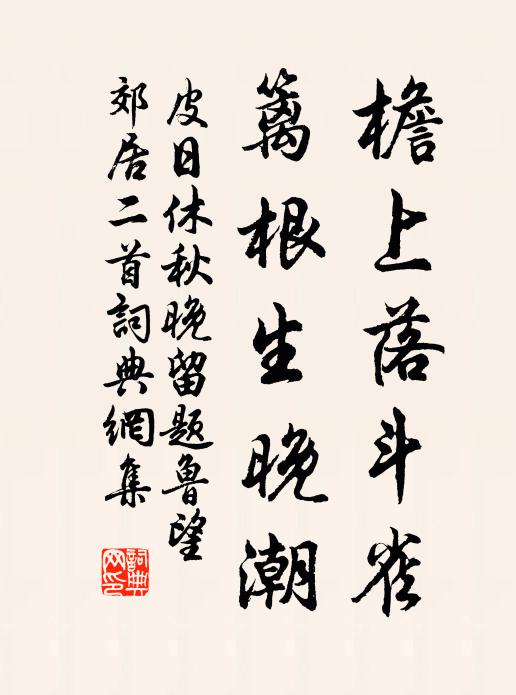 檐上落斗雀
篱根生晚潮
皮日休秋晚留題魯望
郊居二首詞典網集
詞典网印